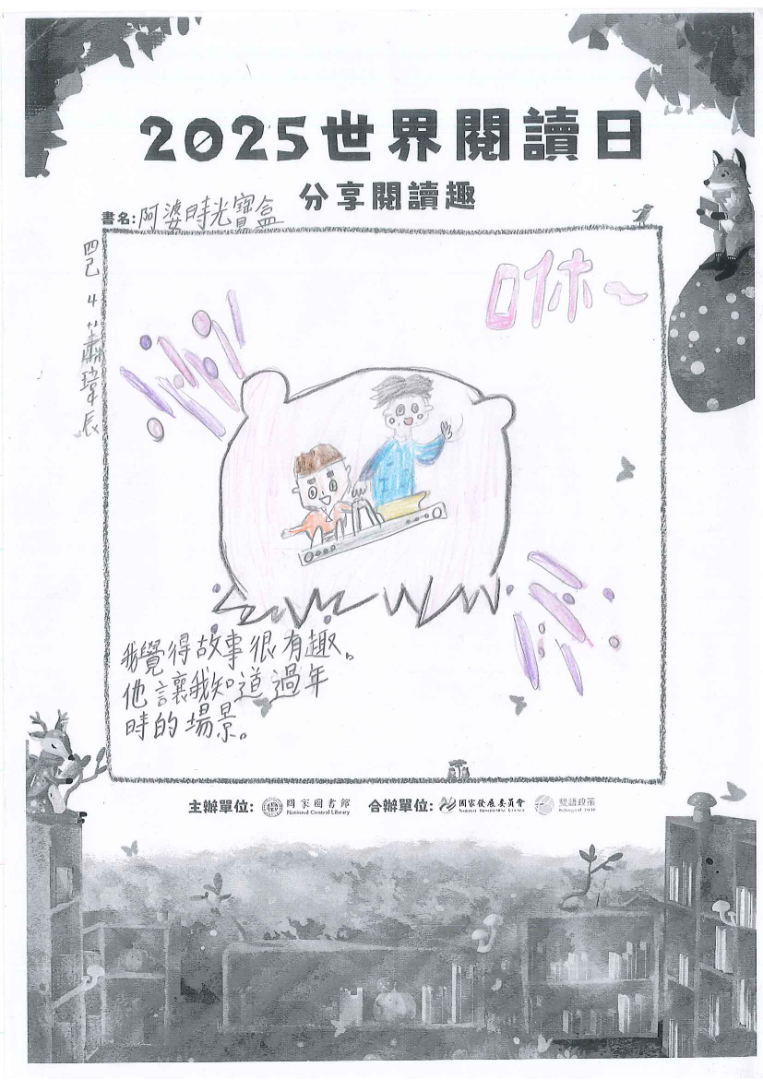 2025世界閱讀日
分享閱讀趣
書名:阿婆時光寶盒
四己 4 蕭瑋辰
咻~
我覺得故事很有趣。
他讓我知道過年
時的場景。
主辦單位: 國家圖書館 National Central Library 合辦單位: 國家發展委員會 雙語政策